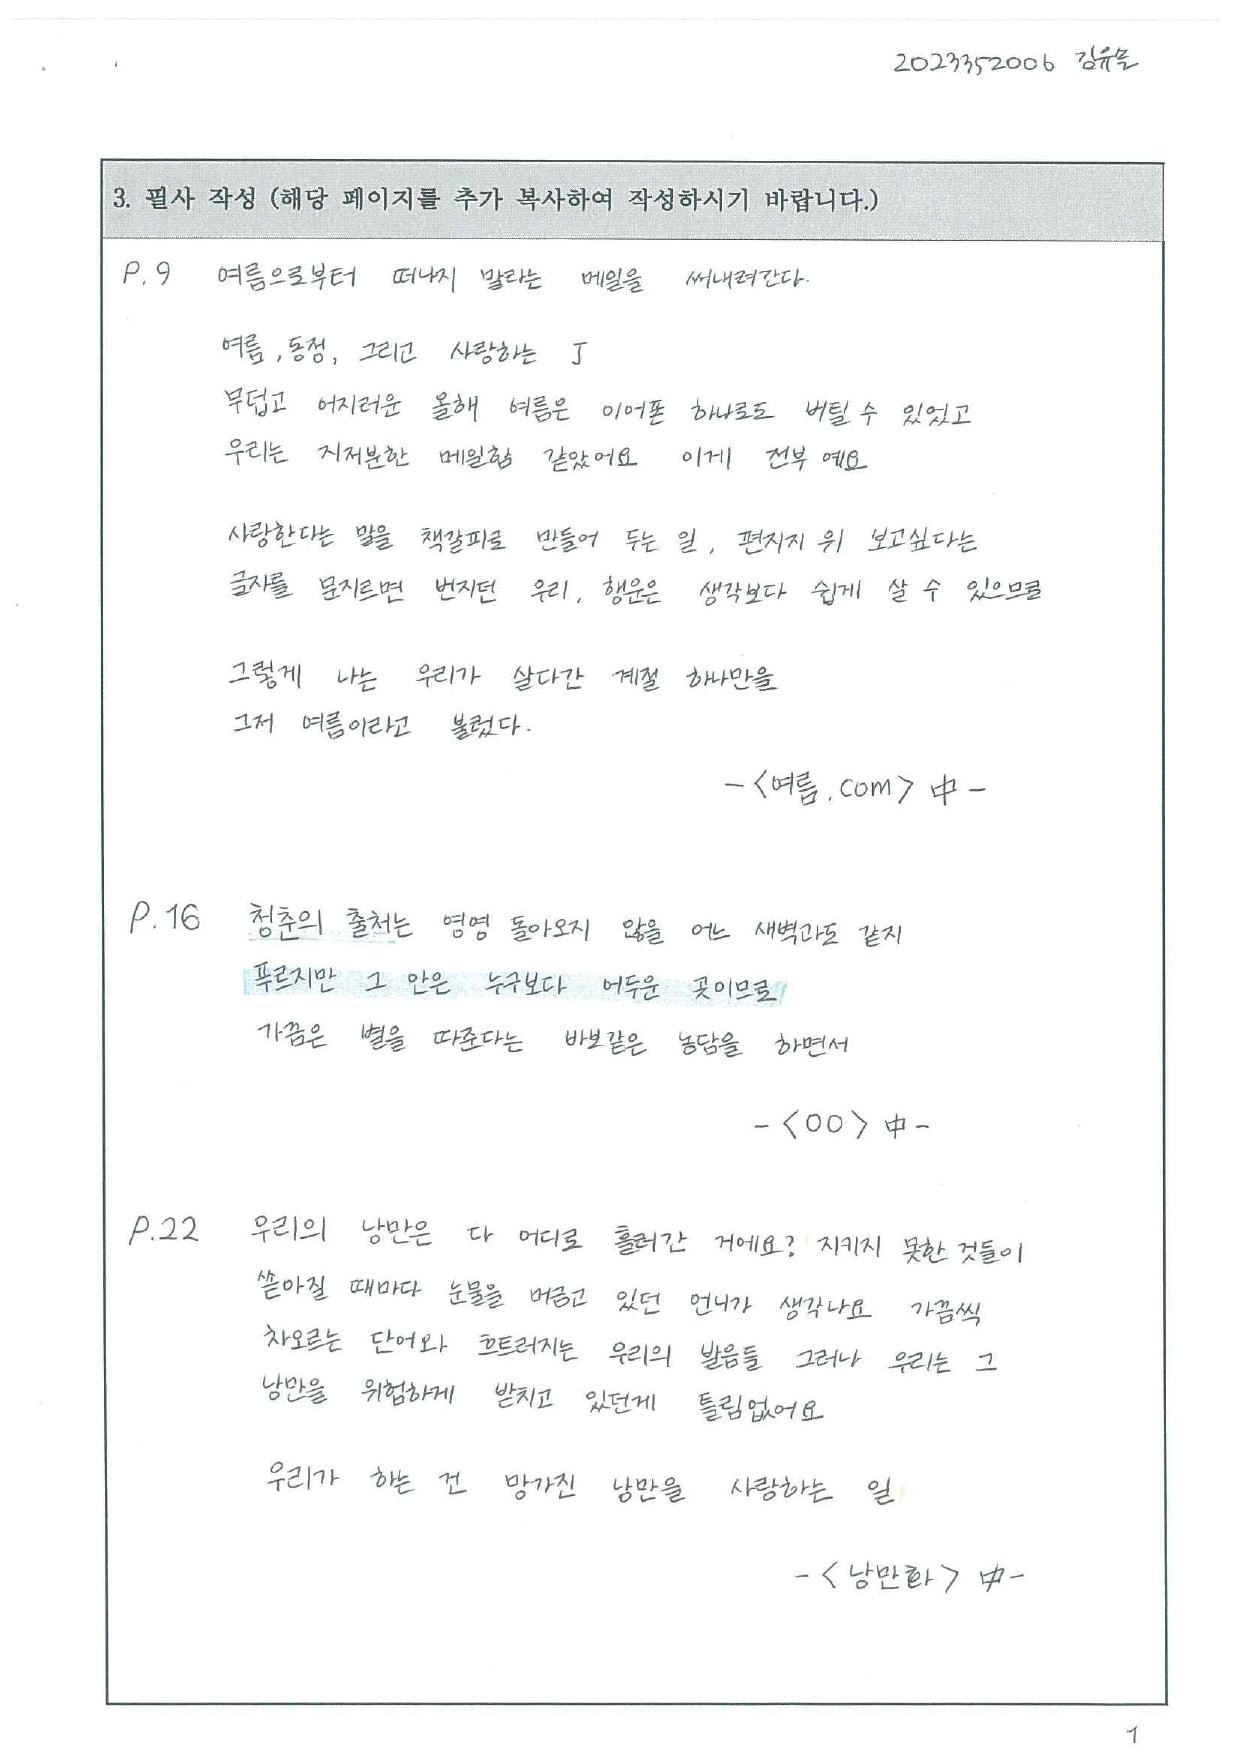 2023352006 김유
3. 필사 작성 (해당 페이지를 추가 복사하여 작성하시기 바랍니다.)
P.9 여름으로부터 떠나지 말라는 메일을 써내려간다.
여름, 동정, 그리고 사랑하는 J
무덥고 어지러운 올해 여름은 이어폰 하나로도 버틸 수 있었고
우리는 지저분한 메일함 같았어요 이게 전부 예요
사랑한다는 말을 책갈피로 만들어 두는 일, 편지지 위 보고싶다는
글자를 문지르면 번지던 우리, 행운은 생각보다 쉽게 살 수 있으므로
그렇게 나는 우리가 살다간 계절 하나만을
그저 여름이라고 불렀다.
-<여름.com> 中-
P.16 청춘의 출처는 영영 돌아오지 않을 어느 새벽과도 같지
푸르지만 그 안은 누구보다 어두운 곳이므로
가끔은 별을 따준다는 바보같은 농담을 하면서
-<00> 中-
P.22 우리의 낭만은 다 어디로 흘러간 거에요? 지키지 못한 것들이
쏟아질 때마다 눈물을 머금고 있던 언니가 생각나요 가끔씩
차오르는 단어와 흐트러지는 우리의 발음들 그러나 우리는 그
낭만을 위험하게 받치고 있던게 틀림없어요
우리가 하는 건 망가진 낭만을 사랑하는 일
-<낭만화> 中-
1